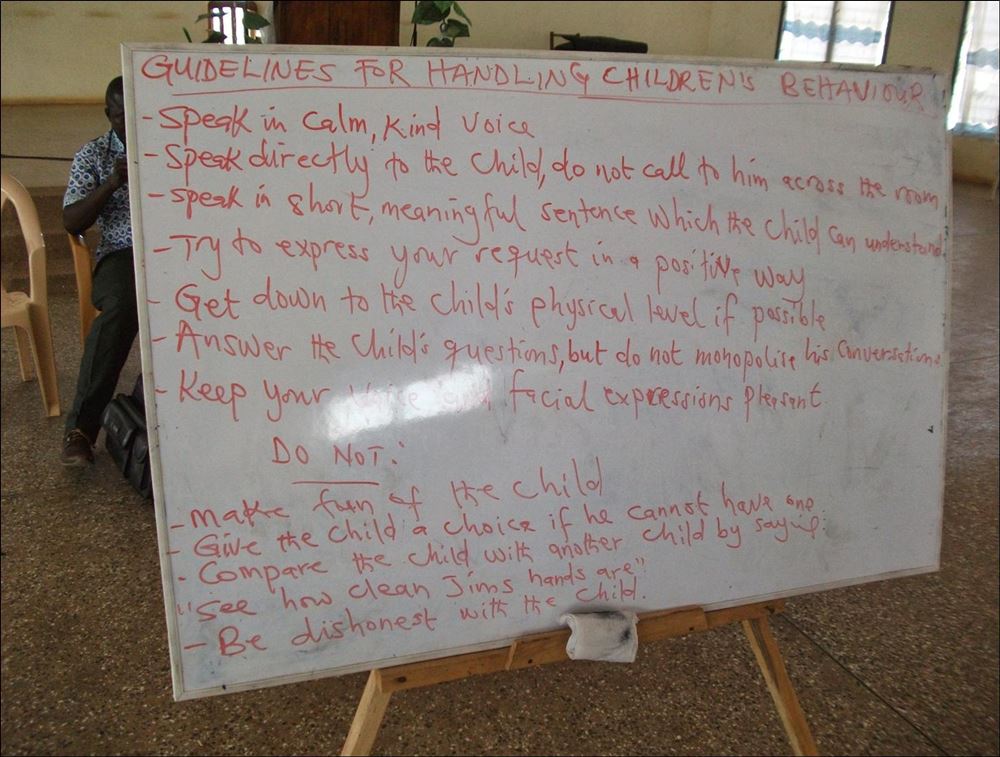 GUIDELINES FOR HANDLING CHILDREN'S BEHAVIOUR
- Speak in calm, kind voice
- Speak directly to the child, do not call to him across the room
- speak in short, meaningful sentence which the child can understand.
- Try to express your request in a positive way
- Get down to the child's physical level if possible
- Answer the child's questions, but do not monopolise his conversations
- Keep your voice and facial expressions pleasant
DO NOT:
- make fun of the child
- Give the child a choice if he cannot have one
- Compare the child with another child by saying:
"See how clean Jims hands are"
- Be dishonest with the child.